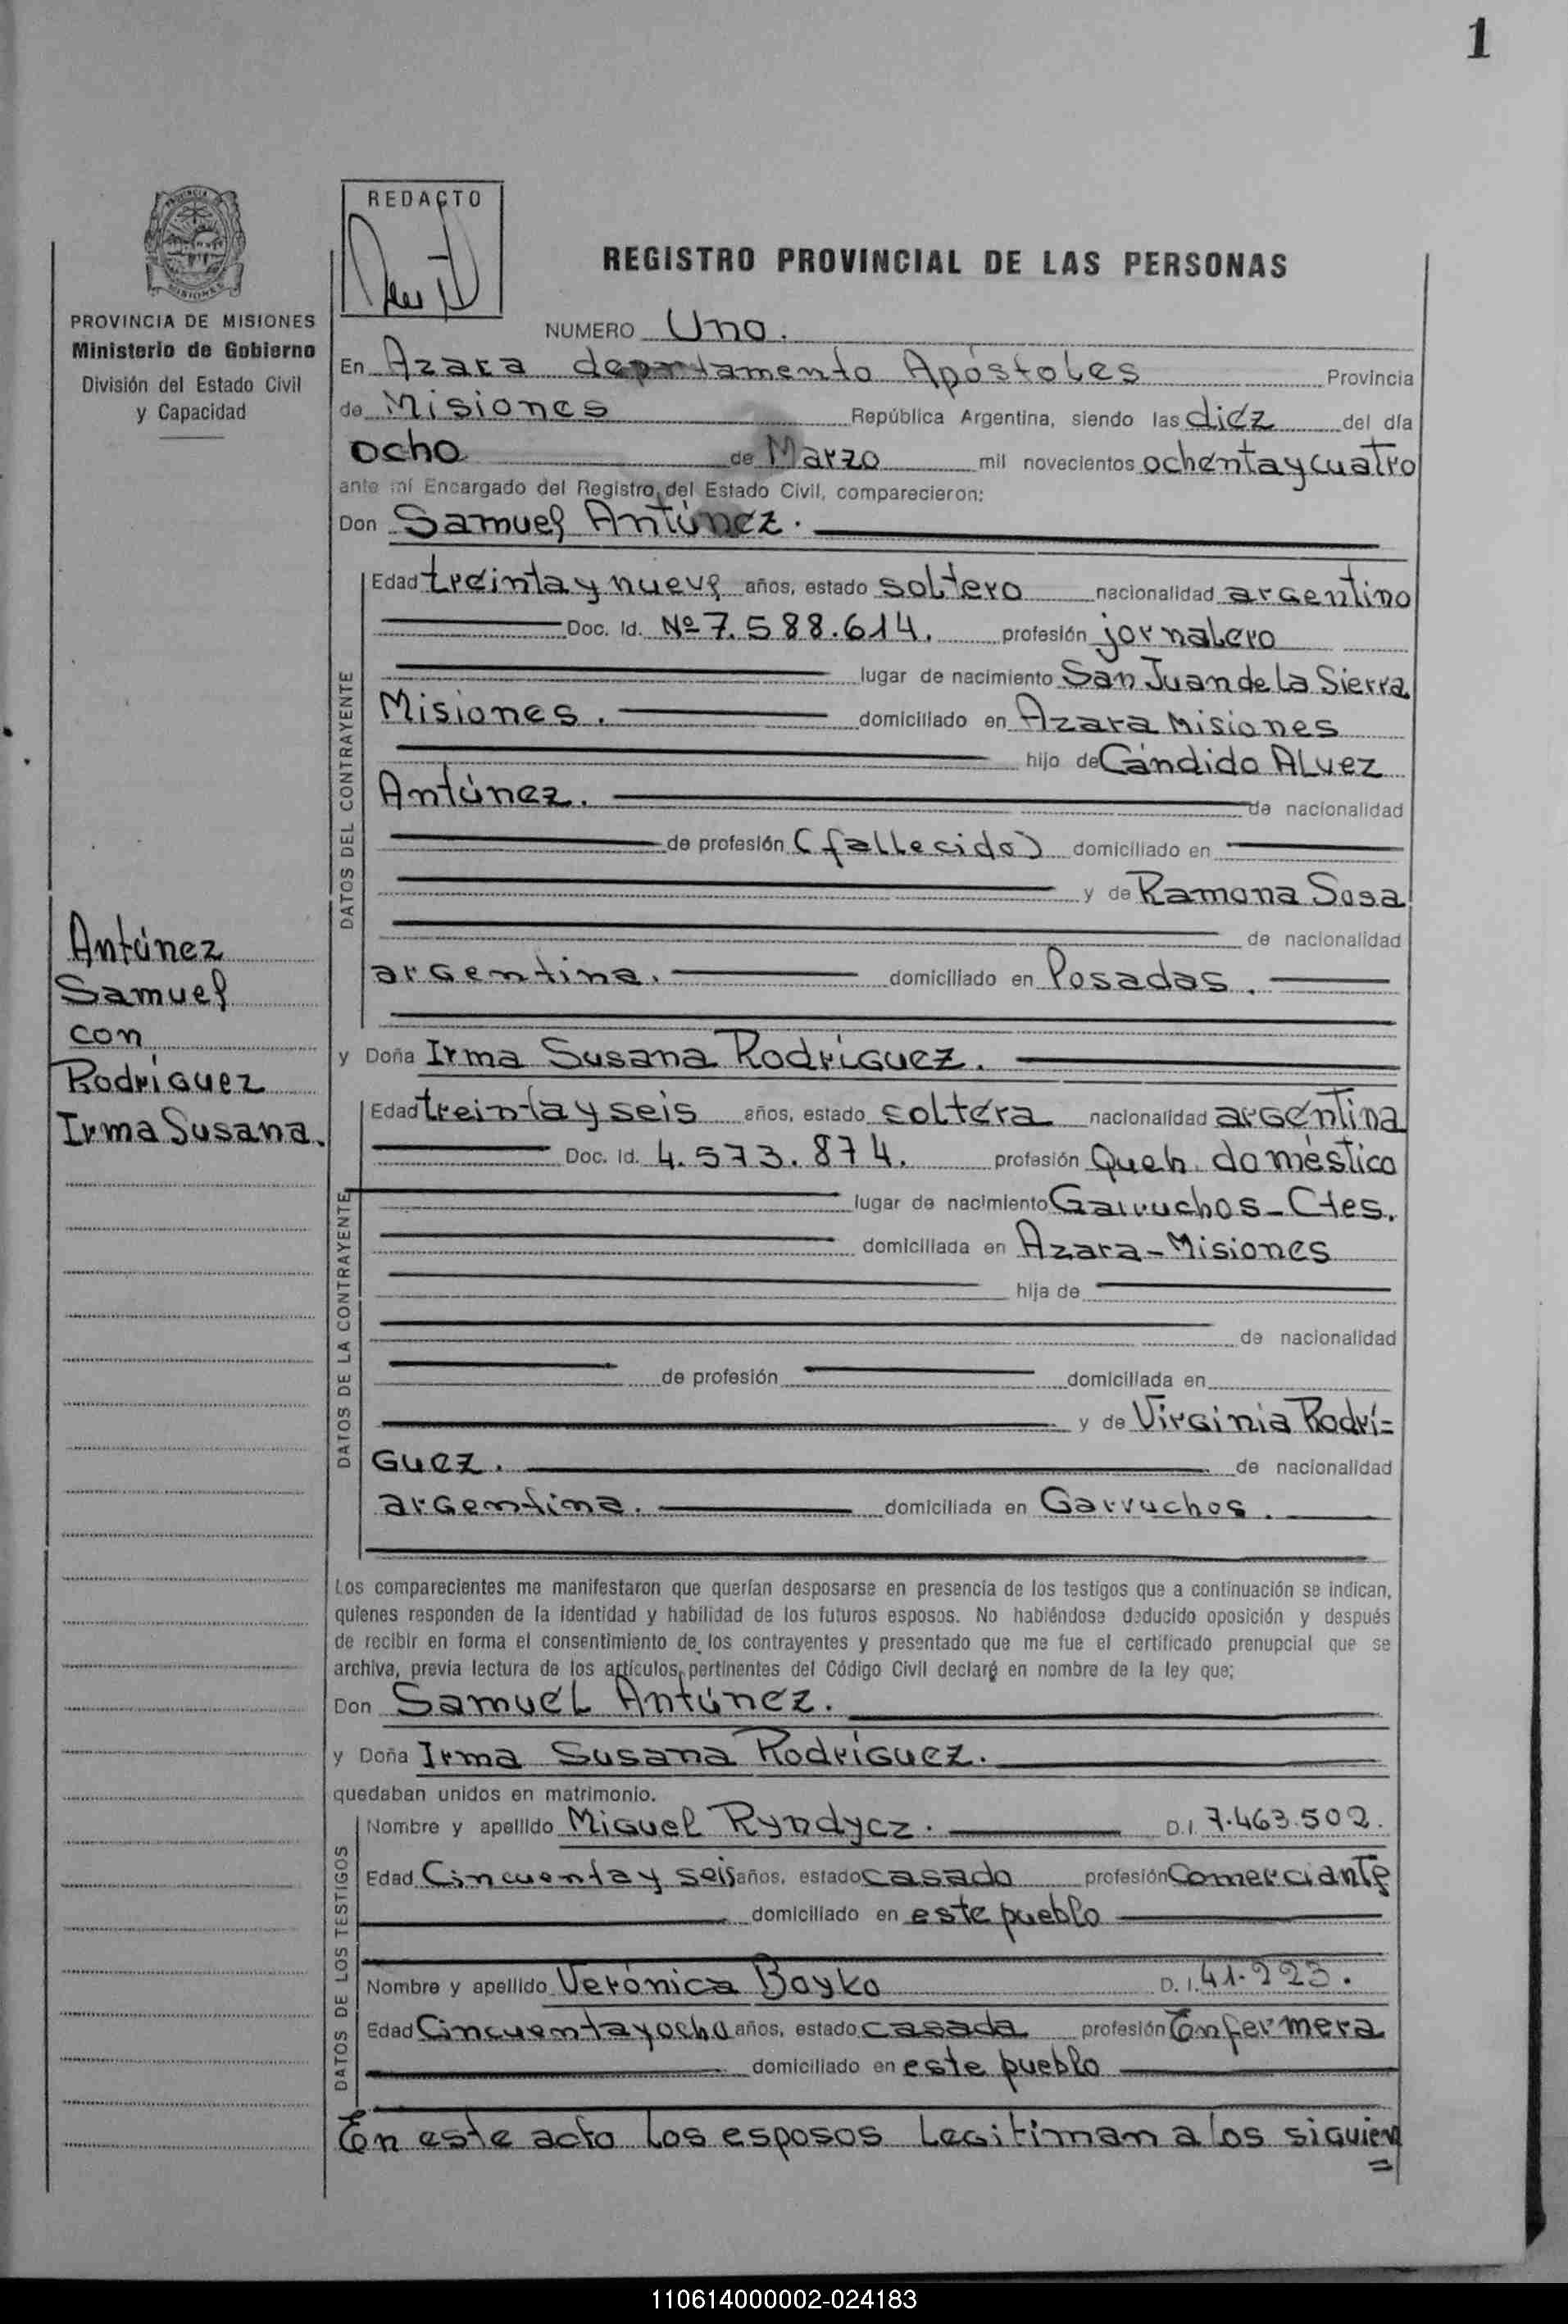 1
REDACTO
REGISTRO PROVINCIAL DE LAS PERSONAS
PROVINCIA DE MISIONES
Ministerio de Gobierno
División del Estado Civil
y Capacidad
NUMERO Uno.
En Azara departamento Apóstoles Provincia
de Misiones República Argentina, siendo las diez del día
ocho de Marzo mil novecientos ochenta y cuatro
ante mí Encargado del Registro del Estado Civil, comparecieron:
Don Samuel Antúnez.
DATOS DEL CONTRAYENTE
Edad treinta y nueve años, estado soltero nacionalidad argentino
Doc. Id. Nº 7.588.614. profesión jornalero
lugar de nacimiento San Juan de La Sierra
Misiones. domiciliado en Azara Misiones
hijo de Cándido ALvez
Antúnez. de nacionalidad
de profesión (fallecido) domiciliado en
y de Ramona Sosa
de nacionalidad
argentina. domiciliado en Posadas.
Antúnez
Samuel
con
Rodríguez
Irma Susana.
y Doña Irma Susana Rodríguez.
DATOS DE LA CONTRAYENTE
Edad treinta y seis años, estado soltera nacionalidad argentina
Doc. Id. 4.573.874. profesión Queh. doméstico
lugar de nacimiento Garruchos - Ctes.
domiciliada en Azara - Misiones
hija de
de nacionalidad
de profesión domiciliada en
y de Virginia Rodrí=
guez. de nacionalidad
argentina. domiciliada en Garruchos.
Los comparecientes me manifestaron que querían desposarse en presencia de los testigos que a continuación se indican,
quienes responden de la identidad y habilidad de los futuros esposos. No habiéndose deducido oposición y después
de recibir en forma el consentimiento de los contrayentes y presentado que me fue el certificado prenupcial que se
archiva, previa lectura de los artículos pertinentes del Código Civil declaré en nombre de la ley que;
Don Samuel Antúnez.
y Doña Irma Susana Rodríguez.
quedaban unidos en matrimonio.
DATOS DE LOS TESTIGOS
Nombre y apellido Miguel Ryndycz. D.I. 7.463.502.
Edad Cincuenta y seis años, estado casado profesión Comerciante
domiciliado en este pueblo
Nombre y apellido Verónica Boyko D.I. 41.223.
Edad Cincuenta y ocho años, estado casada profesión Enfermera
domiciliado en este pueblo
En este acto los esposos Legitiman a los siguien
=
110614000002-024183